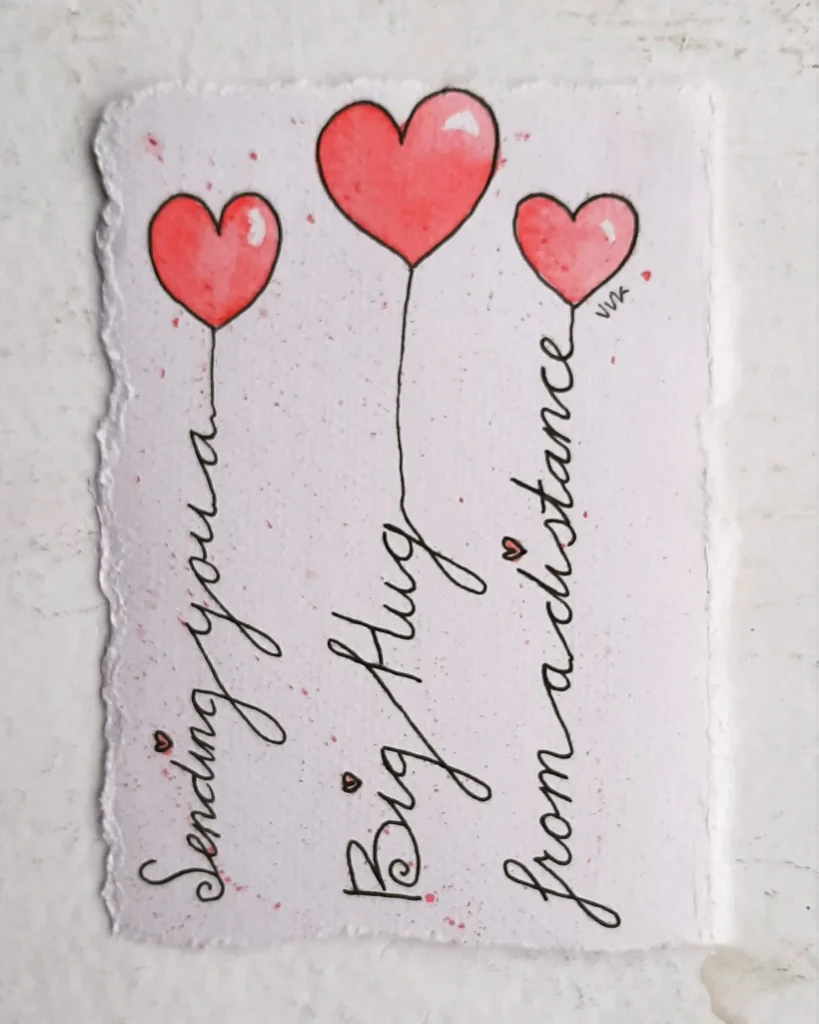 Sending you a
Big Hug
from a distance